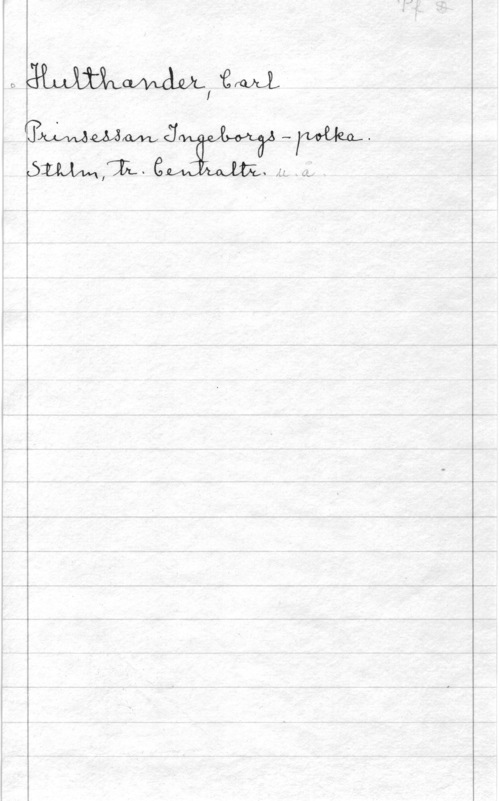 Pf 2
Hulthander, Carl
Prinsessan Ingeborgs-polka.
Sthlm, tr. Centraltr. u.å.